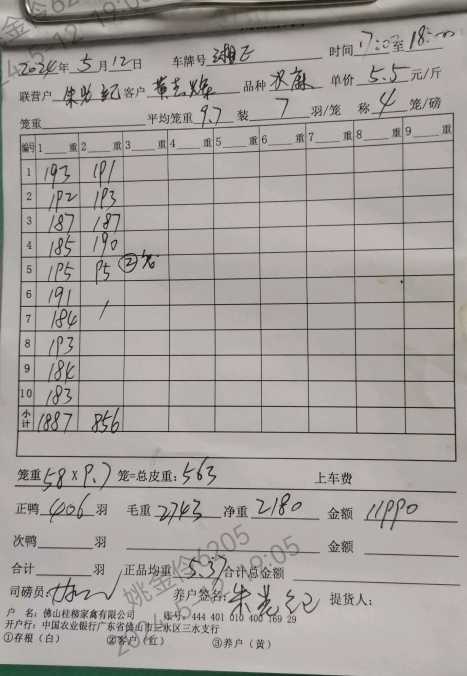 2024年5月12日 车牌号 湘E 时间17:00至18:00
联营户 客户 品种 水麻 单价 5.5 元/斤
笼重 平均笼重 9.7 装 7 羽/笼 称 4 笼/磅
编号 1 重 2 重 3 重 4 重 5 重 6 重 7 重 8 重 9 重
1 193 191
2 192 193
3 187 187
4 185 190
5 195 95 ②笼
6 191
7 184
8 193
9 184
10 183
小计 1887 856
笼重 58 x 9.7 笼=总皮重: 563 上车费
正鸭 406 羽 毛重 2743 净重 2180 金额 11990
次鸭 羽 金额
合计 羽 正品均重 5.37 合计总金额
司磅员: 养户签名: 提货人:
户 名: 佛山桂柳家禽有限公司 账号: 444 401 010 400 769 29
开户行: 中国农业银行广东省佛山市三水区三水支行
①存根(白) ②客户(红) ③养户(黄)
姚金伶6205
2024-5-12 19:05